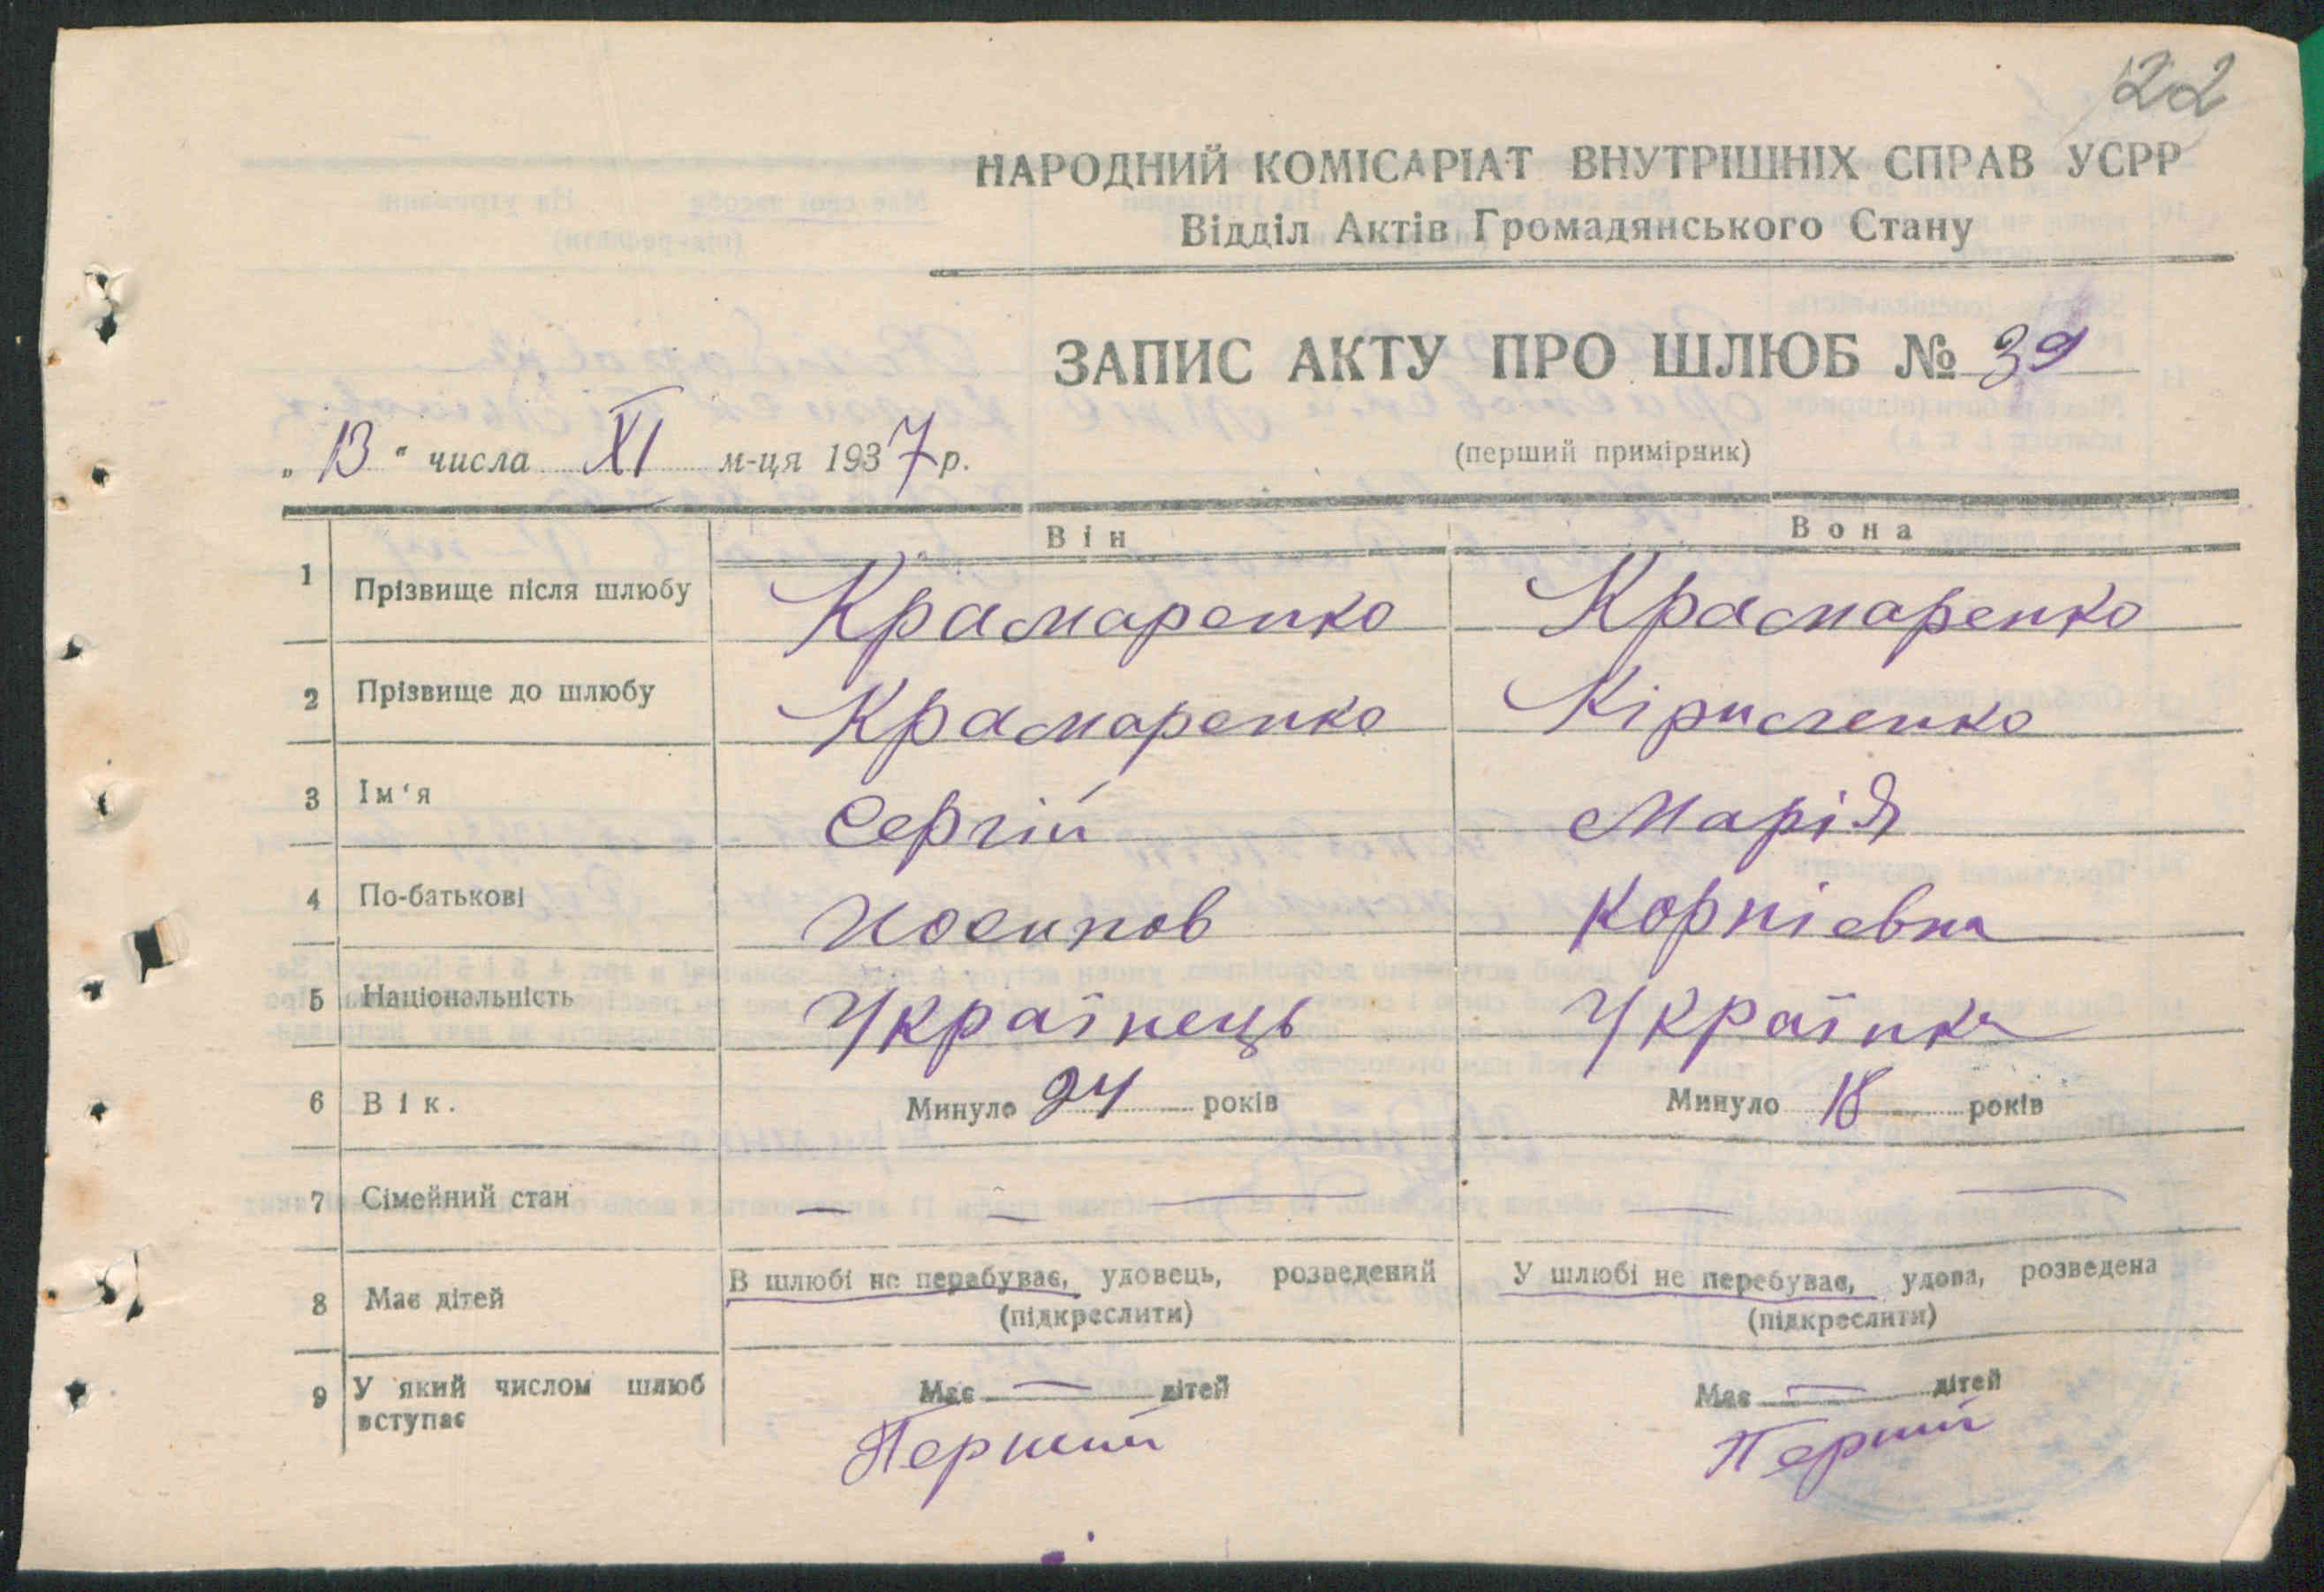 22
НАРОДНИЙ КОМІСАРІАТ ВНУТРІШНІХ СПРАВ УСРР
Відділ Актів Громадянського Стану
ЗАПИС АКТУ ПРО ШЛЮБ № 39
„ 13 " числа XI м-ця 1937 р.
(перший примірник)
Він Вона
1 Прізвище після шлюбу Крамаренко Крамаренко
2 Прізвище до шлюбу Крамаренко Кириленко
3 Ім'я Сергій Марія
4 По-батькові Иосипов Корнієвна
5 Національність Українець Українка
6 Вік. Минуло 24 років Минуло 18 років
7 Сімейний стан — — — — —
8 Має дітей В шлюбі не перебуває, удовець, розведений У шлюбі не перебуває, удова, розведена
(підкреслити) (підкреслити)
9 У який числом шлюб Має — дітей Має — дітей
вступає Перший Перший